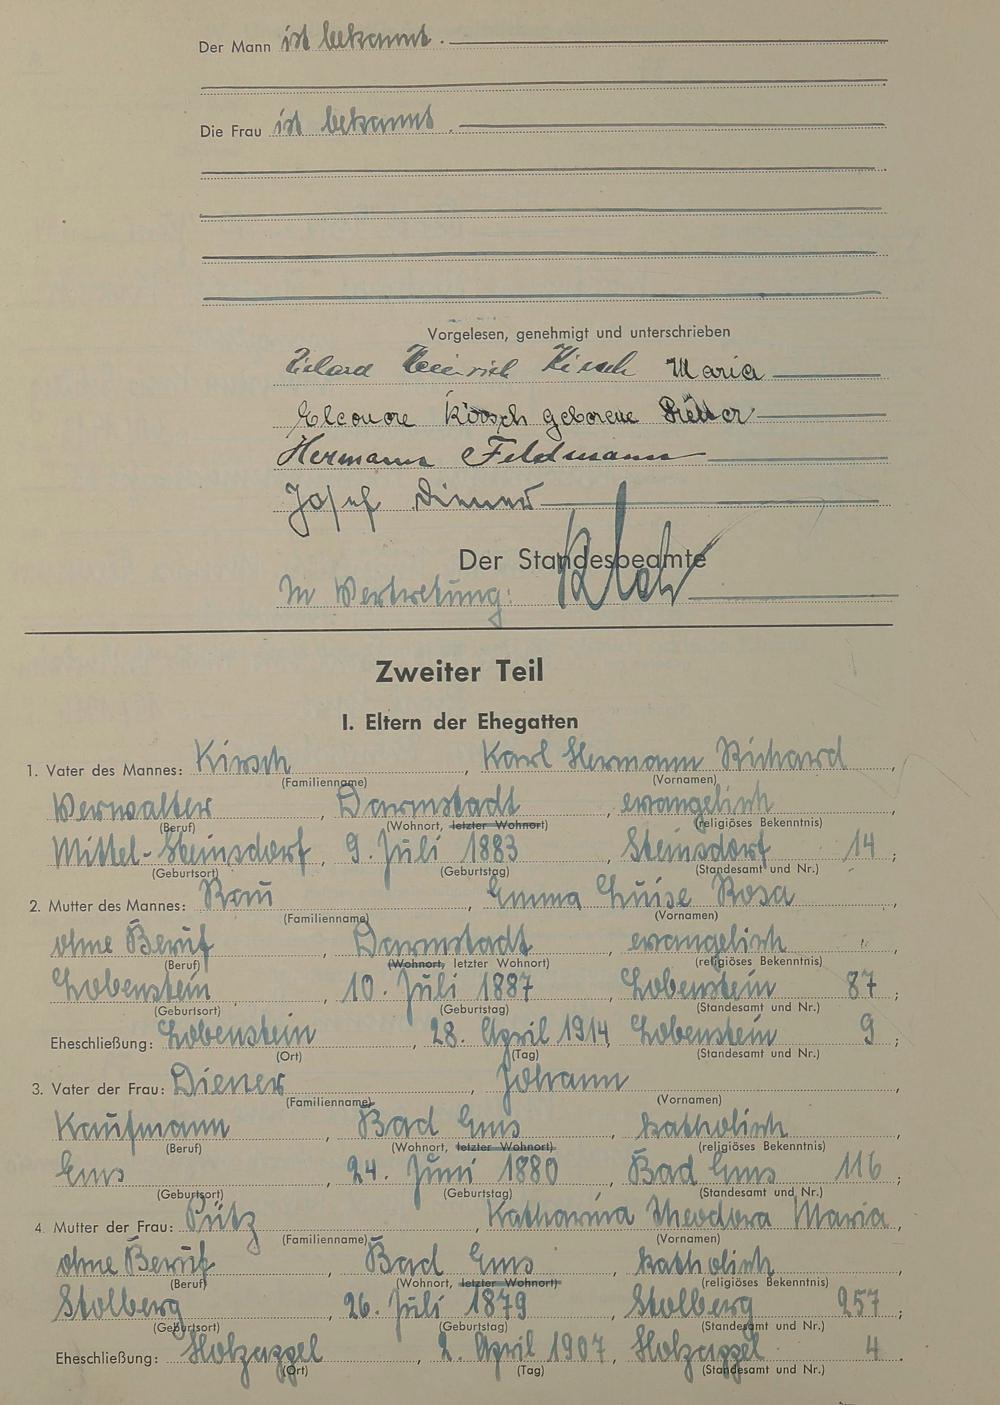 Der Mann ist bekannt.
Die Frau ist bekannt.
Vorgelesen, genehmigt und unterschrieben
Richard Heinrich Kirsch Maria
Eleonore Kirsch geborene
Hermann Feldmann
Josef Diener
Der Standesbeamte
In Vertretung:
Zweiter Teil
I. Eltern der Ehegatten
1. Vater des Mannes: Kirsch, Karl Hermann Richard,
(Familienname) (Vornamen)
Verwalter Darmstadt, evangelisch,
(Beruf) (Wohnort, letzter Wohnort) (religiöses Bekenntnis)
Mittel-Steinsdorf, 9. Juli 1883, Steinsdorf 14;
(Geburtsort) (Geburtstag) (Standesamt und Nr.)
2. Mutter des Mannes: Rau, Emma Luise Rosa
(Familienname) (Vornamen)
ohne Beruf, Darmstadt, evangelisch,
(Beruf) (Wohnort, letzter Wohnort) (religiöses Bekenntnis)
Lobenstein, 10. Juli 1887, Lobenstein 87;
(Geburtsort) (Geburtstag) (Standesamt und Nr.)
Eheschließung: Lobenstein, 28. April 1914 Lobenstein 9;
(Ort) (Tag) (Standesamt und Nr.)
3. Vater der Frau: Diener, Johann,
(Familienname) (Vornamen)
Kaufmann, Bad Ems, katholisch,
(Beruf) (Wohnort, letzter Wohnort) (religiöses Bekenntnis)
Ems, 24. Juni 1880, Bad Ems 116;
(Geburtsort) (Geburtstag) (Standesamt und Nr.)
4. Mutter der Frau: Pütz, Katharina Theodora Maria,
(Familienname) (Vornamen)
ohne Beruf, Bad Ems, katholisch,
(Beruf) (Wohnort, letzter Wohnort) (religiöses Bekenntnis)
Stolberg, 26. Juli 1879, Stolberg 257;
(Geburtsort) (Geburtstag) (Standesamt und Nr.)
Eheschließung: Holzappel, 2. April 1907, Holzappel 4.
(Ort) (Tag) (Standesamt und Nr.)